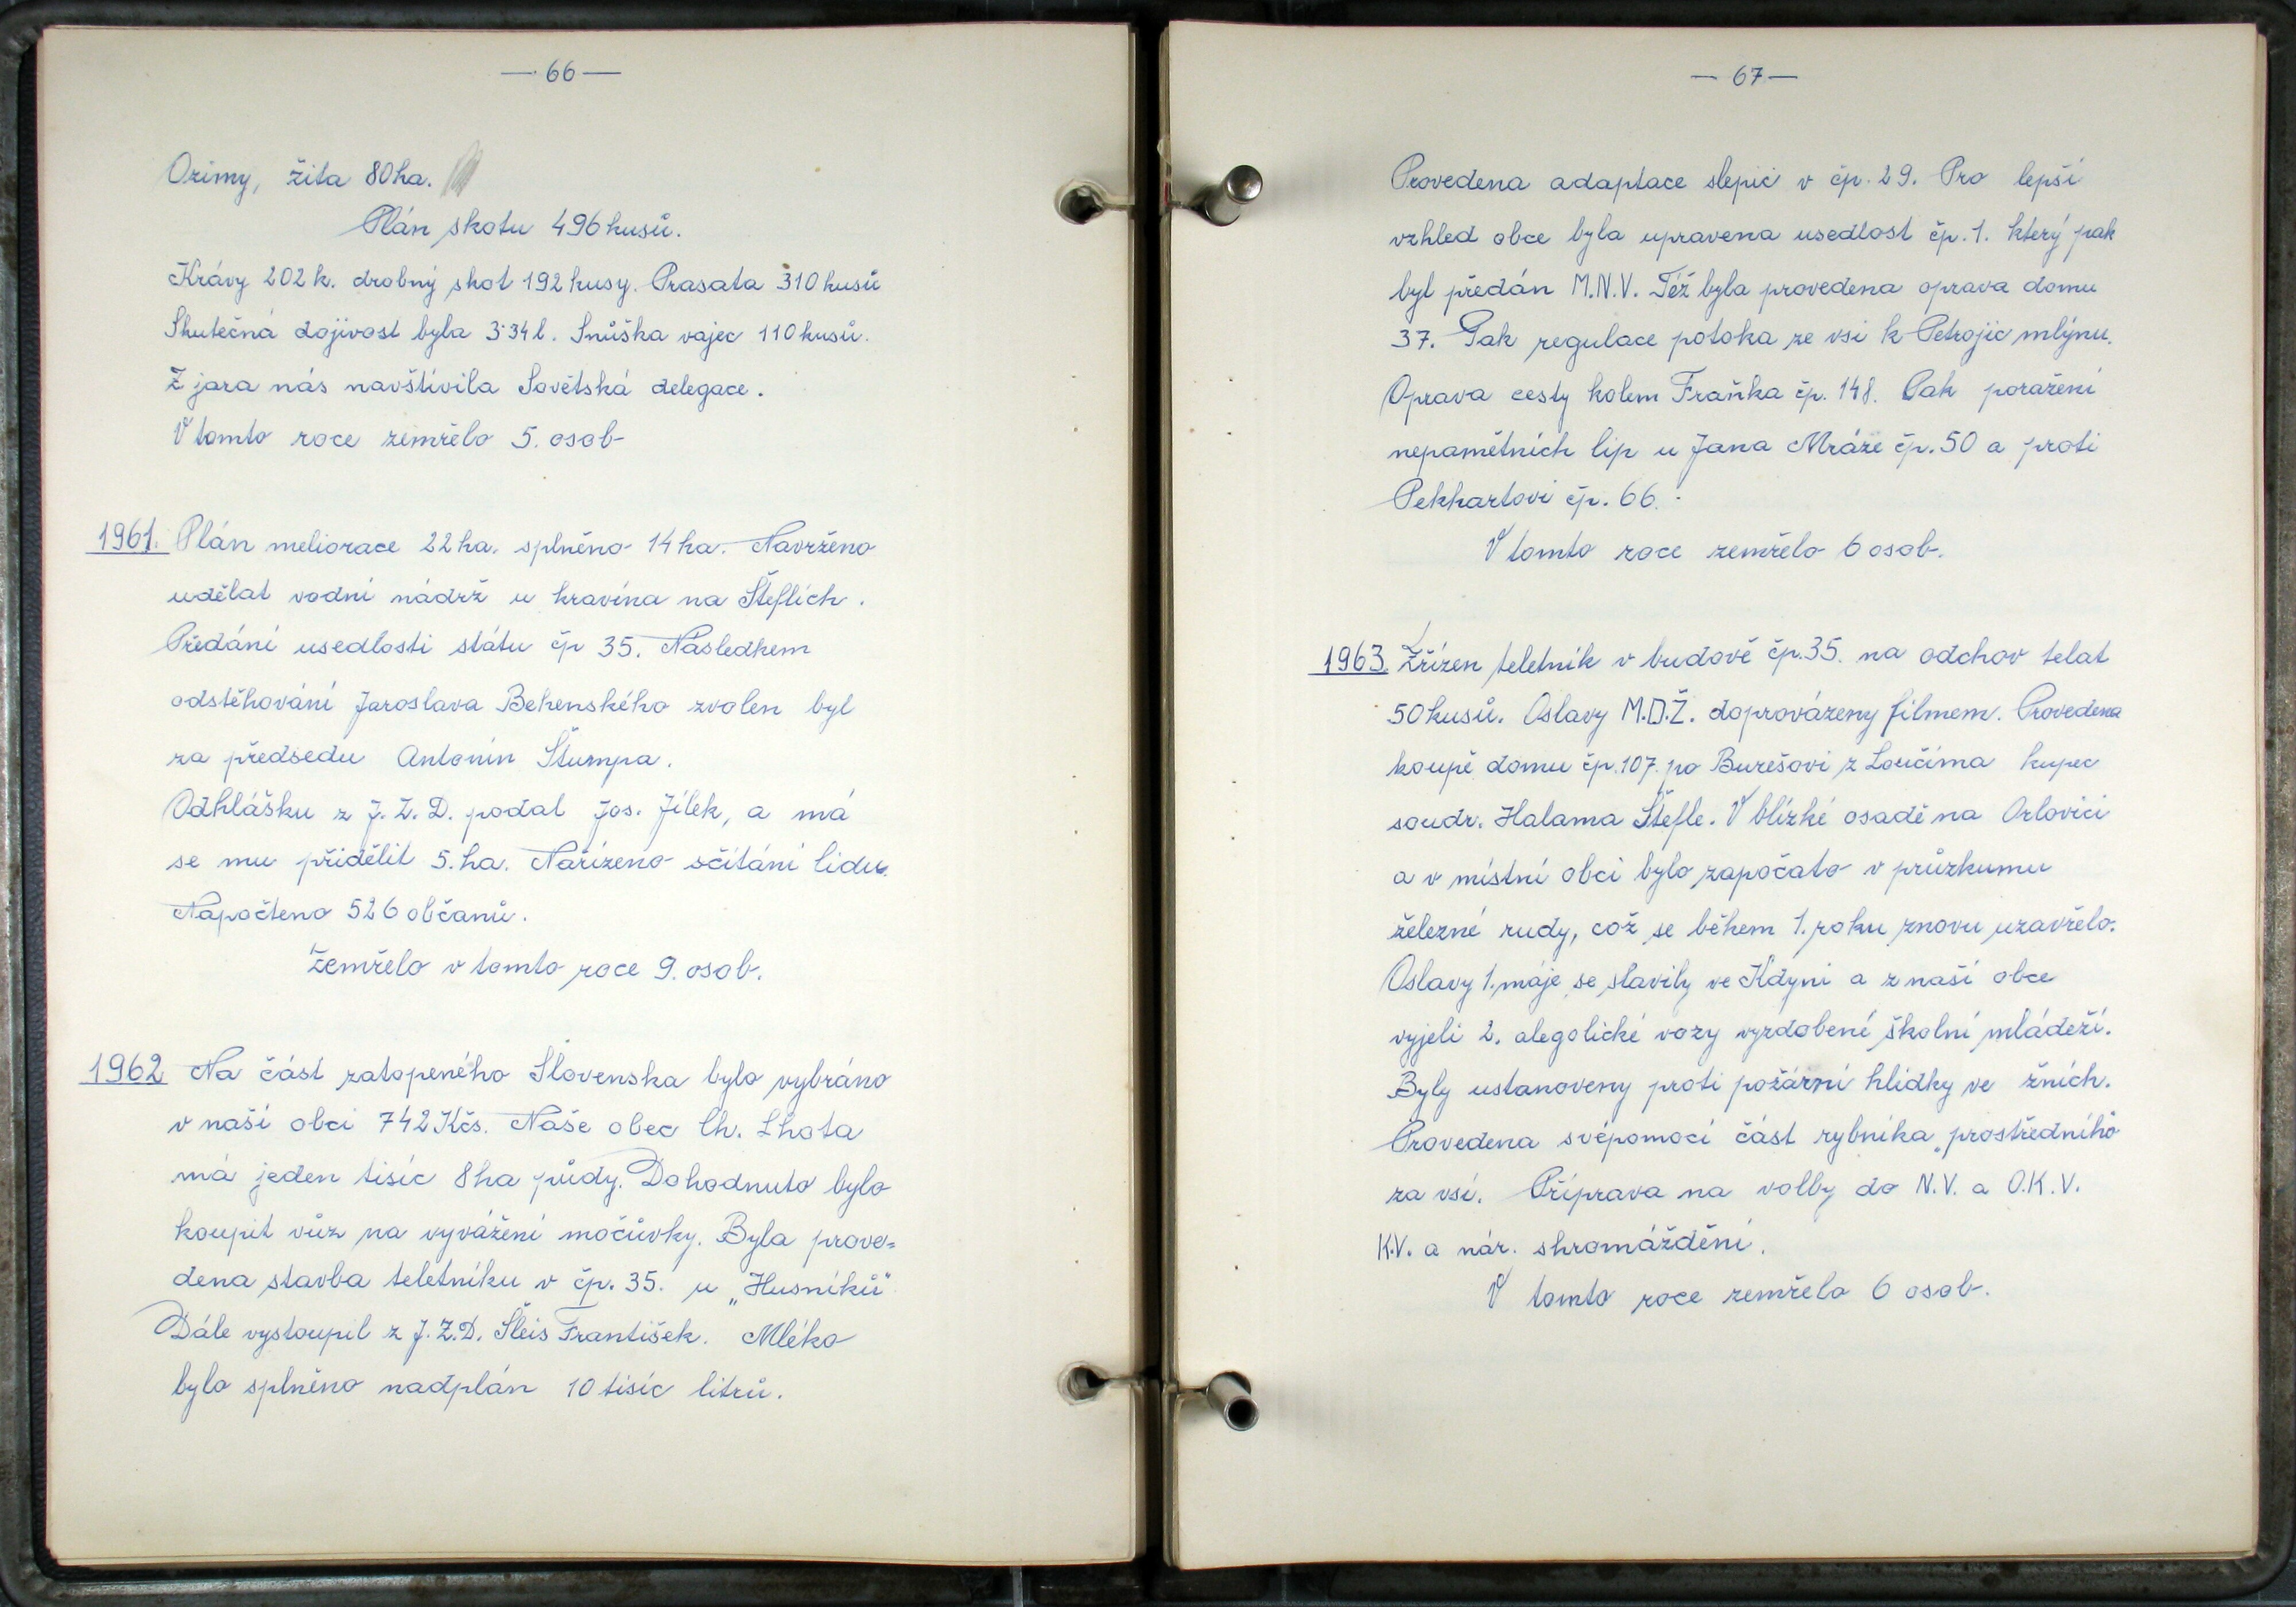 — 66 —
Ozimy, žita 80 ha.
Plán skotu 496 kusů.
Krávy 202 k. drobný skot 192 kusy. Prasata 310 kusů
Skutečná dojivost byla 3˙34 l. Snůška vajec 110 kusů.
Z jara nás navštívila Sovětská delegace.
V tomto roce zemřelo 5. osob
1961. Plán meliorace 22 ha. splněno 14 ha. Navrženo
udělat vodní nádrž u kravína na Šteflích.
Předání usedlosti státu čp 35. Následkem
odstěhování Jaroslava Behenského zvolen byl
za předsedu Antonín Štumpa.
Odhlášku z J.Z.D. podal Jos. Jílek, a má
se mu přidělit 5. ha. Nařízeno sčítání lidu.
Napočteno 526 občanů.
Zemřelo v tomto roce 9. osob.
1962 Na část zatopeného Slovenska bylo vybráno
v naší obci 742 Kčs. Naše obec Ch. Lhota
má jeden tisíc 8 ha půdy. Dohodnuto bylo
koupit vůz na vyvážení močůvky. Byla prove=
dena stavba teletníku v čp. 35. u „Husníků"
Dále vystoupil z J.Z.D. Šleis František. Mléko
bylo splněno nadplán 10 tisíc litrů.
— 67 —
Provedena adaptace slepic v čp. 29. Pro lepší
vzhled obce byla upravena usedlost čp. 1. který pak
byl předán M.N.V. Též byla provedena oprava domu
37. Pak regulace potoka ze vsi k Petrojic mlýnu.
Oprava cesty kolem Fraňka čp. 148. Pak poražení
nepamětních lip u Jana Mráze čp. 50 a proti
Pekhartovi čp. 66.
V tomto roce zemřelo 6 osob.
1963. Zřízen teletník v budově čp. 35. na odchov telat
50 kusů. Oslavy M.D.Ž. doprovázeny filmem. Provedena
koupě domu čp. 107. po Burešovi z Loučima kupec
soudr. Halama Štefle. V blízké osadě na Orlovici
a v místní obci bylo započato v průzkumu
železné rudy, což se během 1. roku znovu uzavřelo.
Oslavy 1. máje se slavily ve Kdyni a z naší obce
vyjeli 2. alegolické vozy vyzdobené školní mládeží.
Byly ustanoveny proti požární hlídky ve žních.
Provedena svépomocí část rybníka „prostředního"
za vsí. Příprava na volby do N.V. a O.K.V.
K.V. a nár. shromáždění.
V tomto roce zemřelo 6 osob.